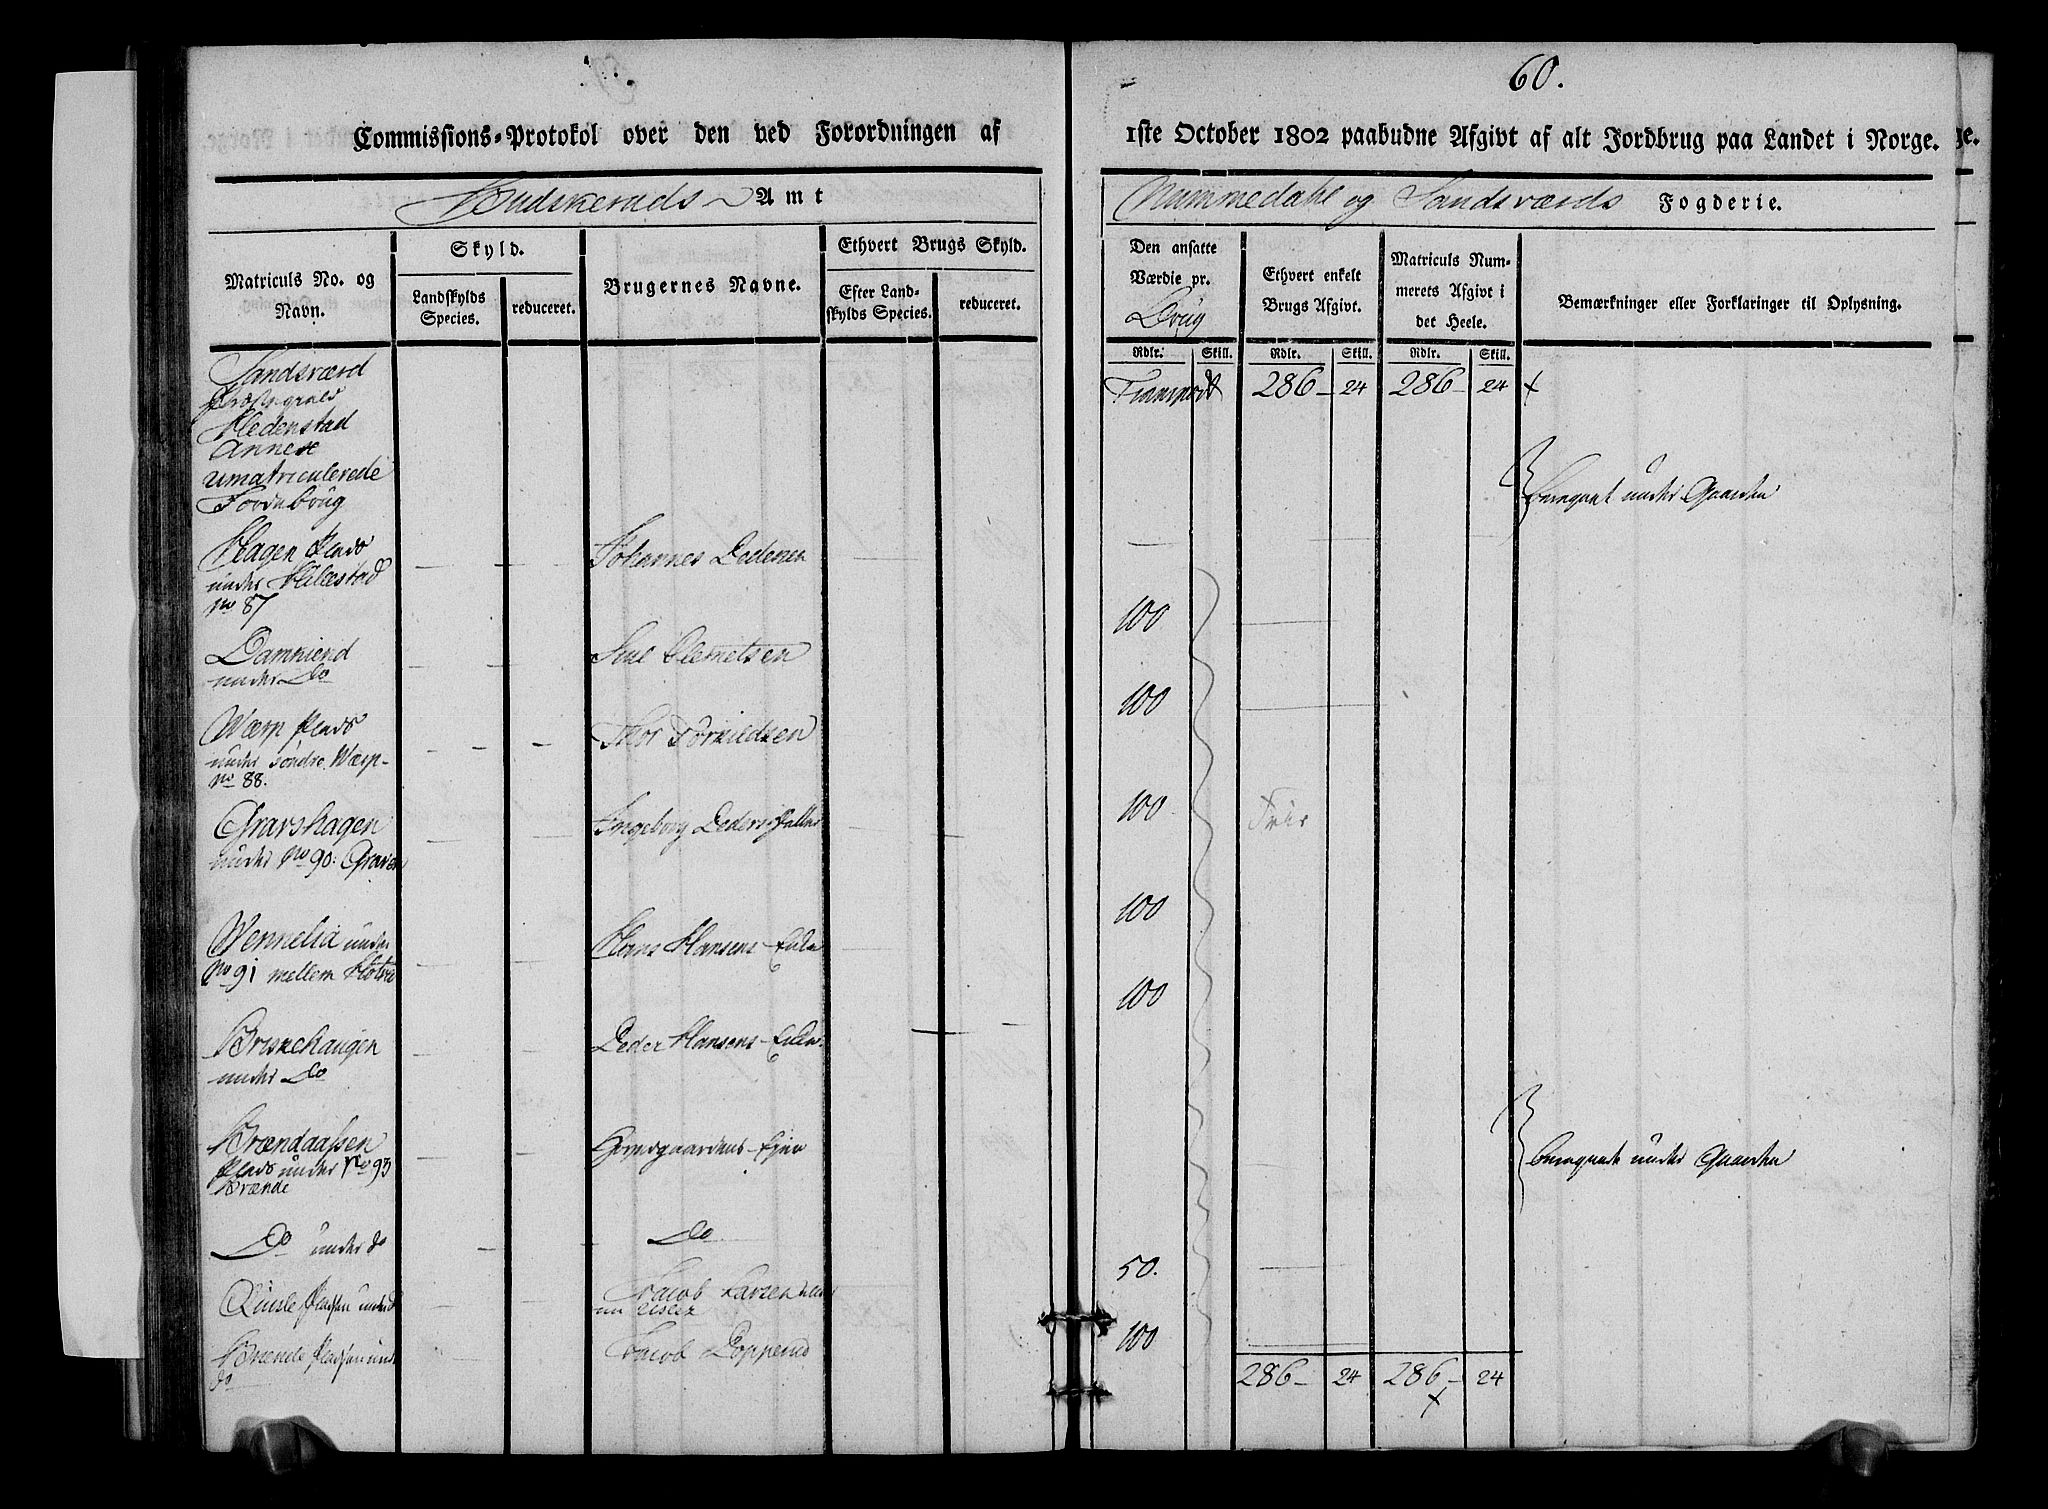 60.
Commissions-Protokol over den ved Forordningen af 1ste October 1802 paabudne Afgivt af alt Jordbrug paa Landet i Norge.
Budskeruds Amt
Nummedahl og Sandsværds Fogderie.
Matriculs No. og Navn.
Skyld.
Landskylds Species.
reduceret.
Brugernes Navne.
Ethvert Brugs Skyld.
Efter Landskylds Species.
reduceret.
Den ansatte Værdie pr.
Ethvert enkelt Brugs Afgivt.
Matriculs Nummerets Afgivt i det Heele.
Bemærkninger eller Forklaringer til Oplysning.
Rdlr. Skill. Rdlr. Skill. Rdlr. Skill.
Sandsværd
Præstegield
Hedenstad
Annex
umatriculerede
Jordebrug
Transport 286 - 24 286 - 24 x
Beregnet under Gaarden
Hagen Plads
under Hillestad
No 87
Johannes Pedersen
100
Damniend
under Do
Clemetsen
100
Wærp Plads
under søndre Wærp
No 88.
Thor Torkildsen
100
Frie
Gravshagen
under No 90: Graven
Ingeborg Peders
100
Wennelia under
No 91 mellem Hotvet
Hans Hansens Enke
100
Briskehaugen
under Do
Peder Hansens Enke
Brændaassen
Plads under No 93
Brænde
Gaardens Ejer
Beregnet under Gaarden
Do under do
Do
50.
Pladsen under do
Jacob Larsen
Brænde Pladsen under
do
Jacob
100
286 - 24 286 - 24
x